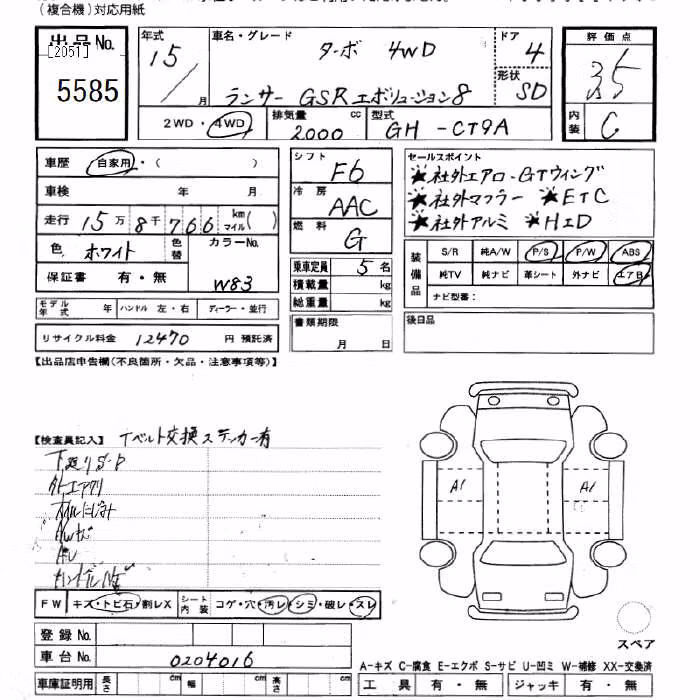 (複合機)対応用紙
出品No. [2051] 5585
年式 15 / 月
車名・グレード ターボ 4WD
ランサー GSR エボリューション8
ドア 4
形状 SD
評価点 3.5
内装 C
2WD・4WD
排気量 2000 cc
型式 GH-CT9A
車歴 自家用・( )
車検 年 月
走行 15万8千766 kmマイル( )
色 ホワイト 色替 カラーNo. W83
保証書 有・無
モデル年式 年 ハンドル 左・右 ディーラー・並行
リサイクル料金 12470 円 預託済
シフト F6
冷房 AAC
燃料 G
乗車定員 5 名
積載量 kg
総重量 kg
書類期限 月 日
セールスポイント
★社外エアロ・GTウィング
★社外マフラー ★ETC
★社外アルミ ★HID
装備品 S/R 純A/W P/S P/W ABS
純TV 純ナビ 革シート 外ナビ エアB
ナビ型番:
後日品
【出品店申告欄(不良箇所・欠品・注意事項等)】
【検査員記入】 Tベルト交換ステッカー有
下廻りS-P
オイルにじみ
AWキズ
ハンドルキズ
A1 A1
FW キズ・トビ石・割レX シート内装 コゲ・穴・汚レ・シミ・破レ・スレ
登録No.
車台No. 0204016
車庫証明用 長さ cm 幅 cm 高さ cm
スペア
A-キズ C-腐食 E-エクボ S-サビ U-凹ミ W-補修 XX-交換済
工具 有・無 ジャッキ 有・無